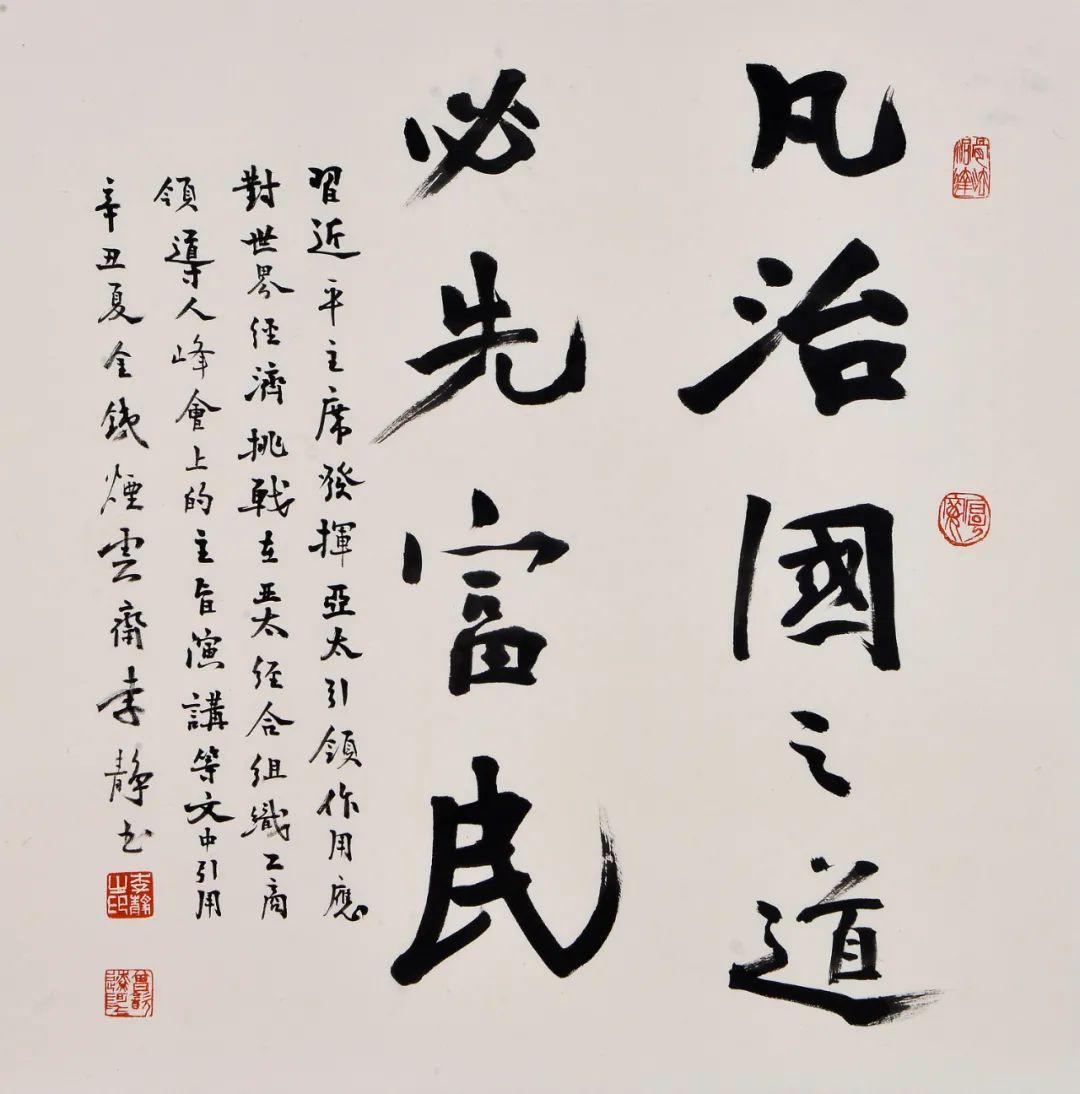 凡治國之道
必先富民
習近平主席發揮亞太引領作用應
對世界經濟挑戰在亞太經合組織工商
領導人峰會上的主旨演講等文中引用
辛丑夏金錢煙雲齋李靜书
李靜之印